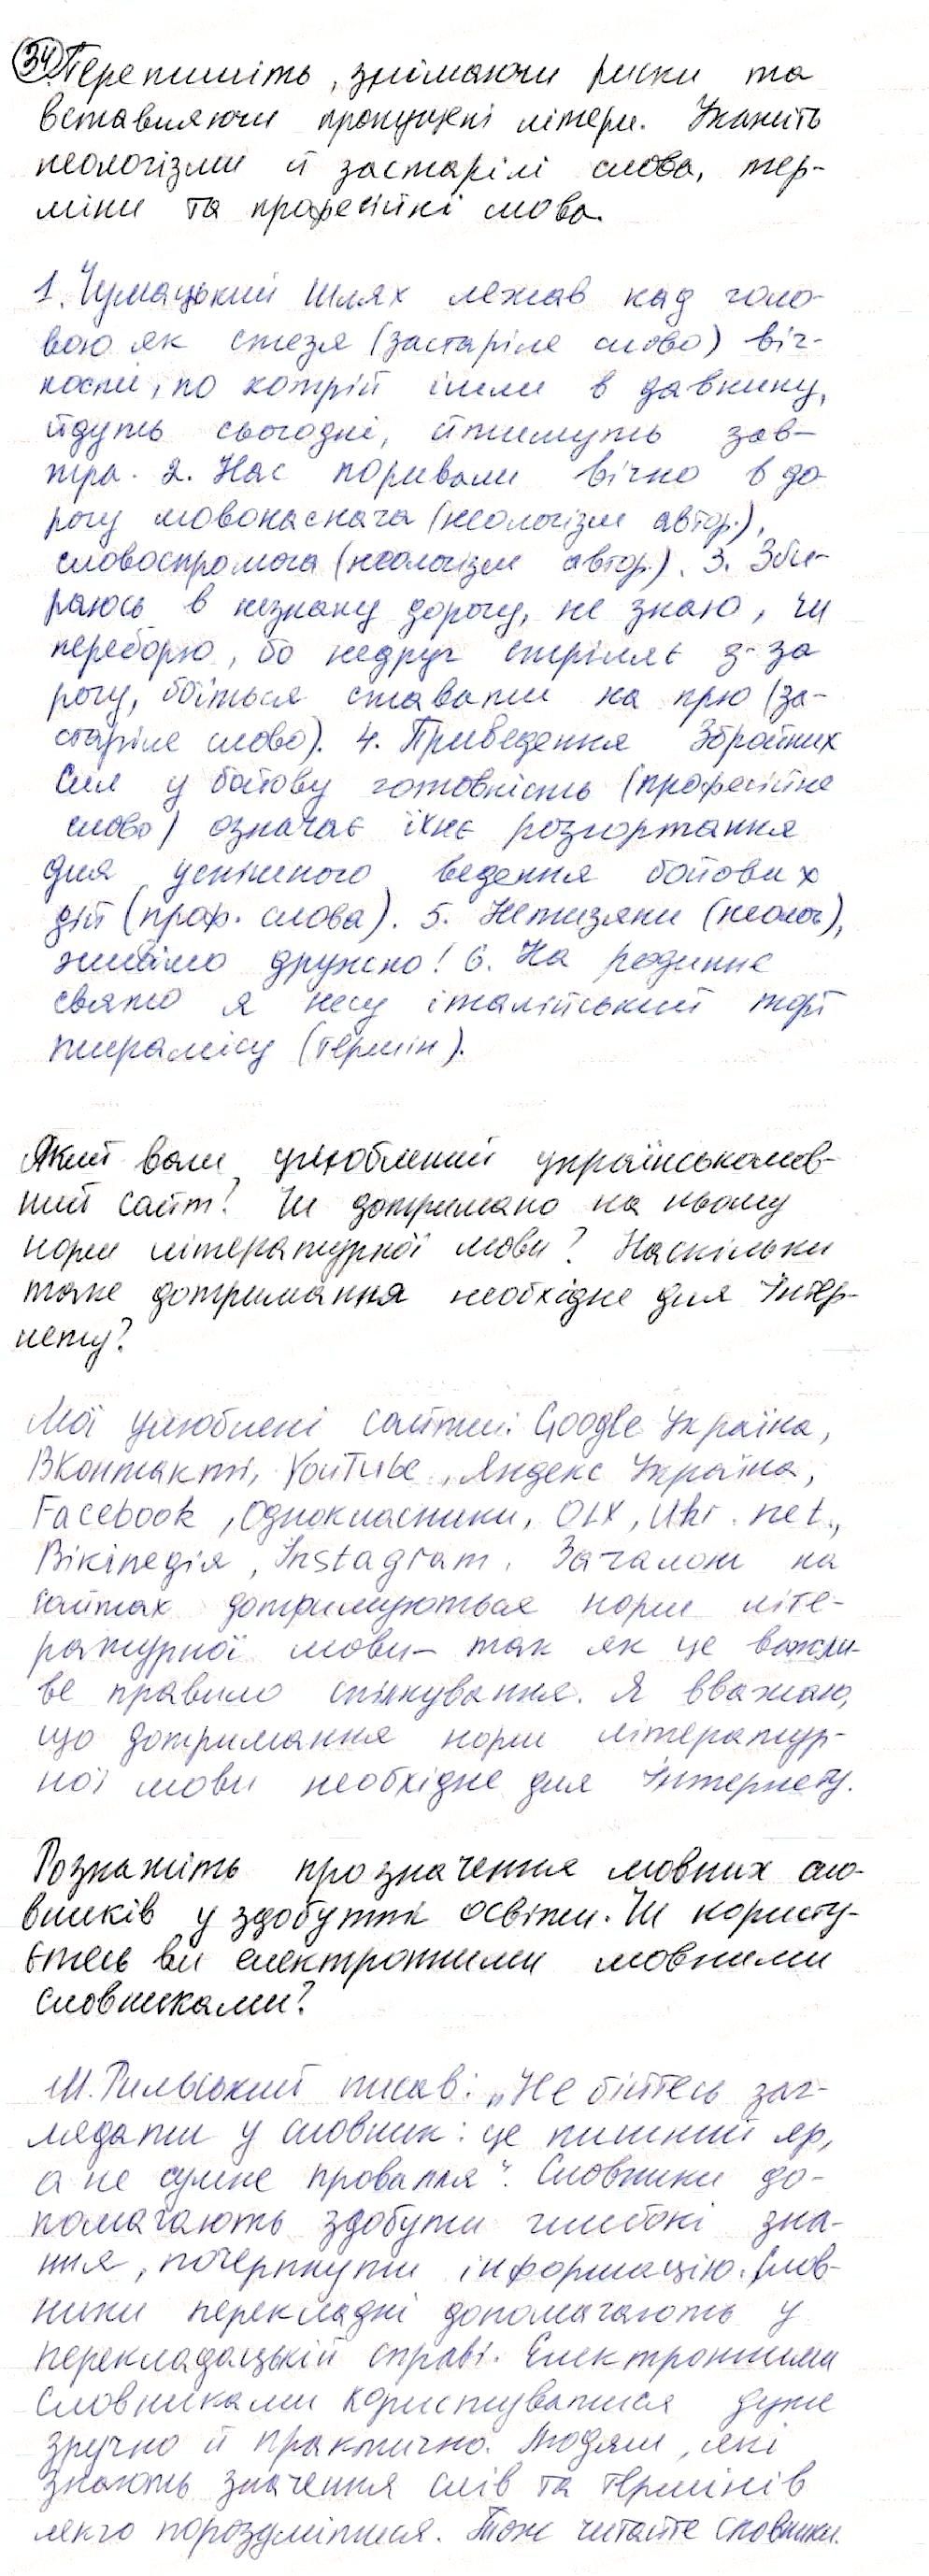 34 Перепишіть, знімаючи риски та
вставляючи пропущені літери. Укажіть
неологізми й застарілі слова, тер-
міни та професійні слова.
1. Чумацький Шлях лежав над голо-
вою як стезя (застаріле слово) віч-
ності, по котрій ішли в давнину,
йдуть сьогодні, йтимуть зав-
тра. 2. Нас поривали вічно в до
рогу мовонаснага (неологізм автор.),
словоспромога (неологізм автор.). 3. Зби-
раюсь в незнану дорогу, не знаю, чи
переборю, бо недруг стріляє з-за
рогу, боїться ставати на прю (за-
старіле слово). 4. Приведення Збройних
Сил у бойову готовність (професійне
слово) означає їхнє розгортання
для успішного ведення бойових
дій (проф. слова). 5. Нетизяни (неолог),
живімо дружно! 6. На родинне
свято я несу італійський торт
тирамісу (термін).
Який ваш улюблений українськомов-
ний сайт? Чи дотримано на ньому
норм літературної мови? Наскільки
таке дотримання необхідне для Інтер-
нету?
Мої улюблені сайти: Google Україна,
ВКонтакті, YouTube, Яндекс Україна,
Facebook, Однокласники, OLX, Ukr.net.,
Вікіпедія, Instagram. Загалом на
сайтах дотримуються норм літе-
ратурної мови – так як це важли-
ве правило спілкування. Я вважаю,
що дотримання норм літератур-
ної мови необхідне для Інтернету.
Розкажіть про значення мовних сло-
вників у здобутті освіти. Чи користу-
єтесь ви електронними мовними
словниками?
М. Рильський писав: „Не бійтесь заг-
лядати у словник: це пишний яр,
а не сумне провалля". Словники до-
помагають здобути глибокі зна-
ння, почерпнути інформацію. Слов-
ники перекладні допомагають у
перекладацькій справі. Електронними
словниками користуватися дуже
зручно й практично. Людям, які
знають значення слів та термінів
легко порозумітися. Тож читайте словники.